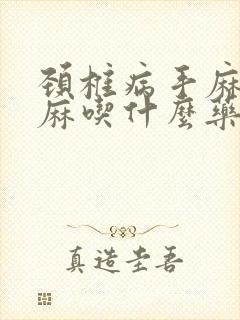 頸椎病手麻
麻喫什麼藥
真造圭吾